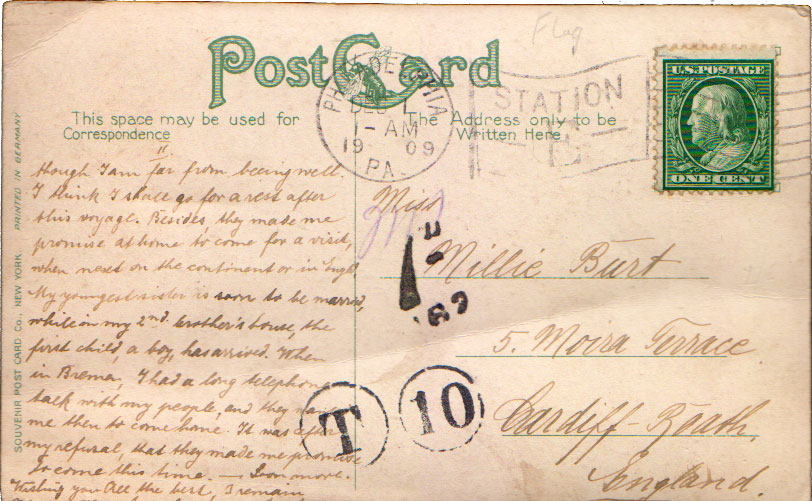 Post Card
This space may be used for
Correspondence
The Address only to be
Written Here
PHILADELPHIA
DEC 1
1-AM
1909
PA.
STATION
U.S. POSTAGE
ONE CENT
Flag
"
though I am far from being well.
I think I shall go for a rest after
this voyage. Besides, they made me
promise at home to come for a visit,
when next on the continent or in Engl.
My youngest sister is soon to be married,
while in my 2nd brother's house, the
first child, a boy, has arrived. When
in Bremen, I had a long telephone
talk with my people, and they
me then to come home. It was after
my refusal, that they made me promise
to come this time. — Soon more.
Wishing you All the best, I remain
Miss
Millie Burt
5. Moira Terrace
Cardiff-Roath.
England.
T
10
SOUVENIR POST CARD Co., NEW YORK. PRINTED IN GERMANY